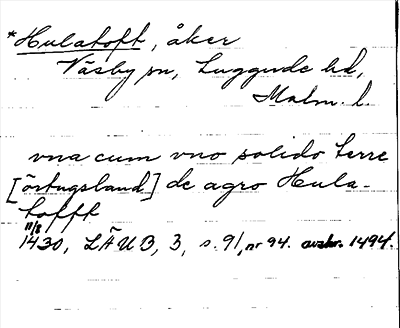 *Hulatoft, åker
Väsby sn, Luggude hd,
Malm. l.
vna cum vno solido terre
[örtugsland] de agro Hula-
tofft
11/8
1430, LÄUB, 3, s. 91, nr 94. avskr. 1494.